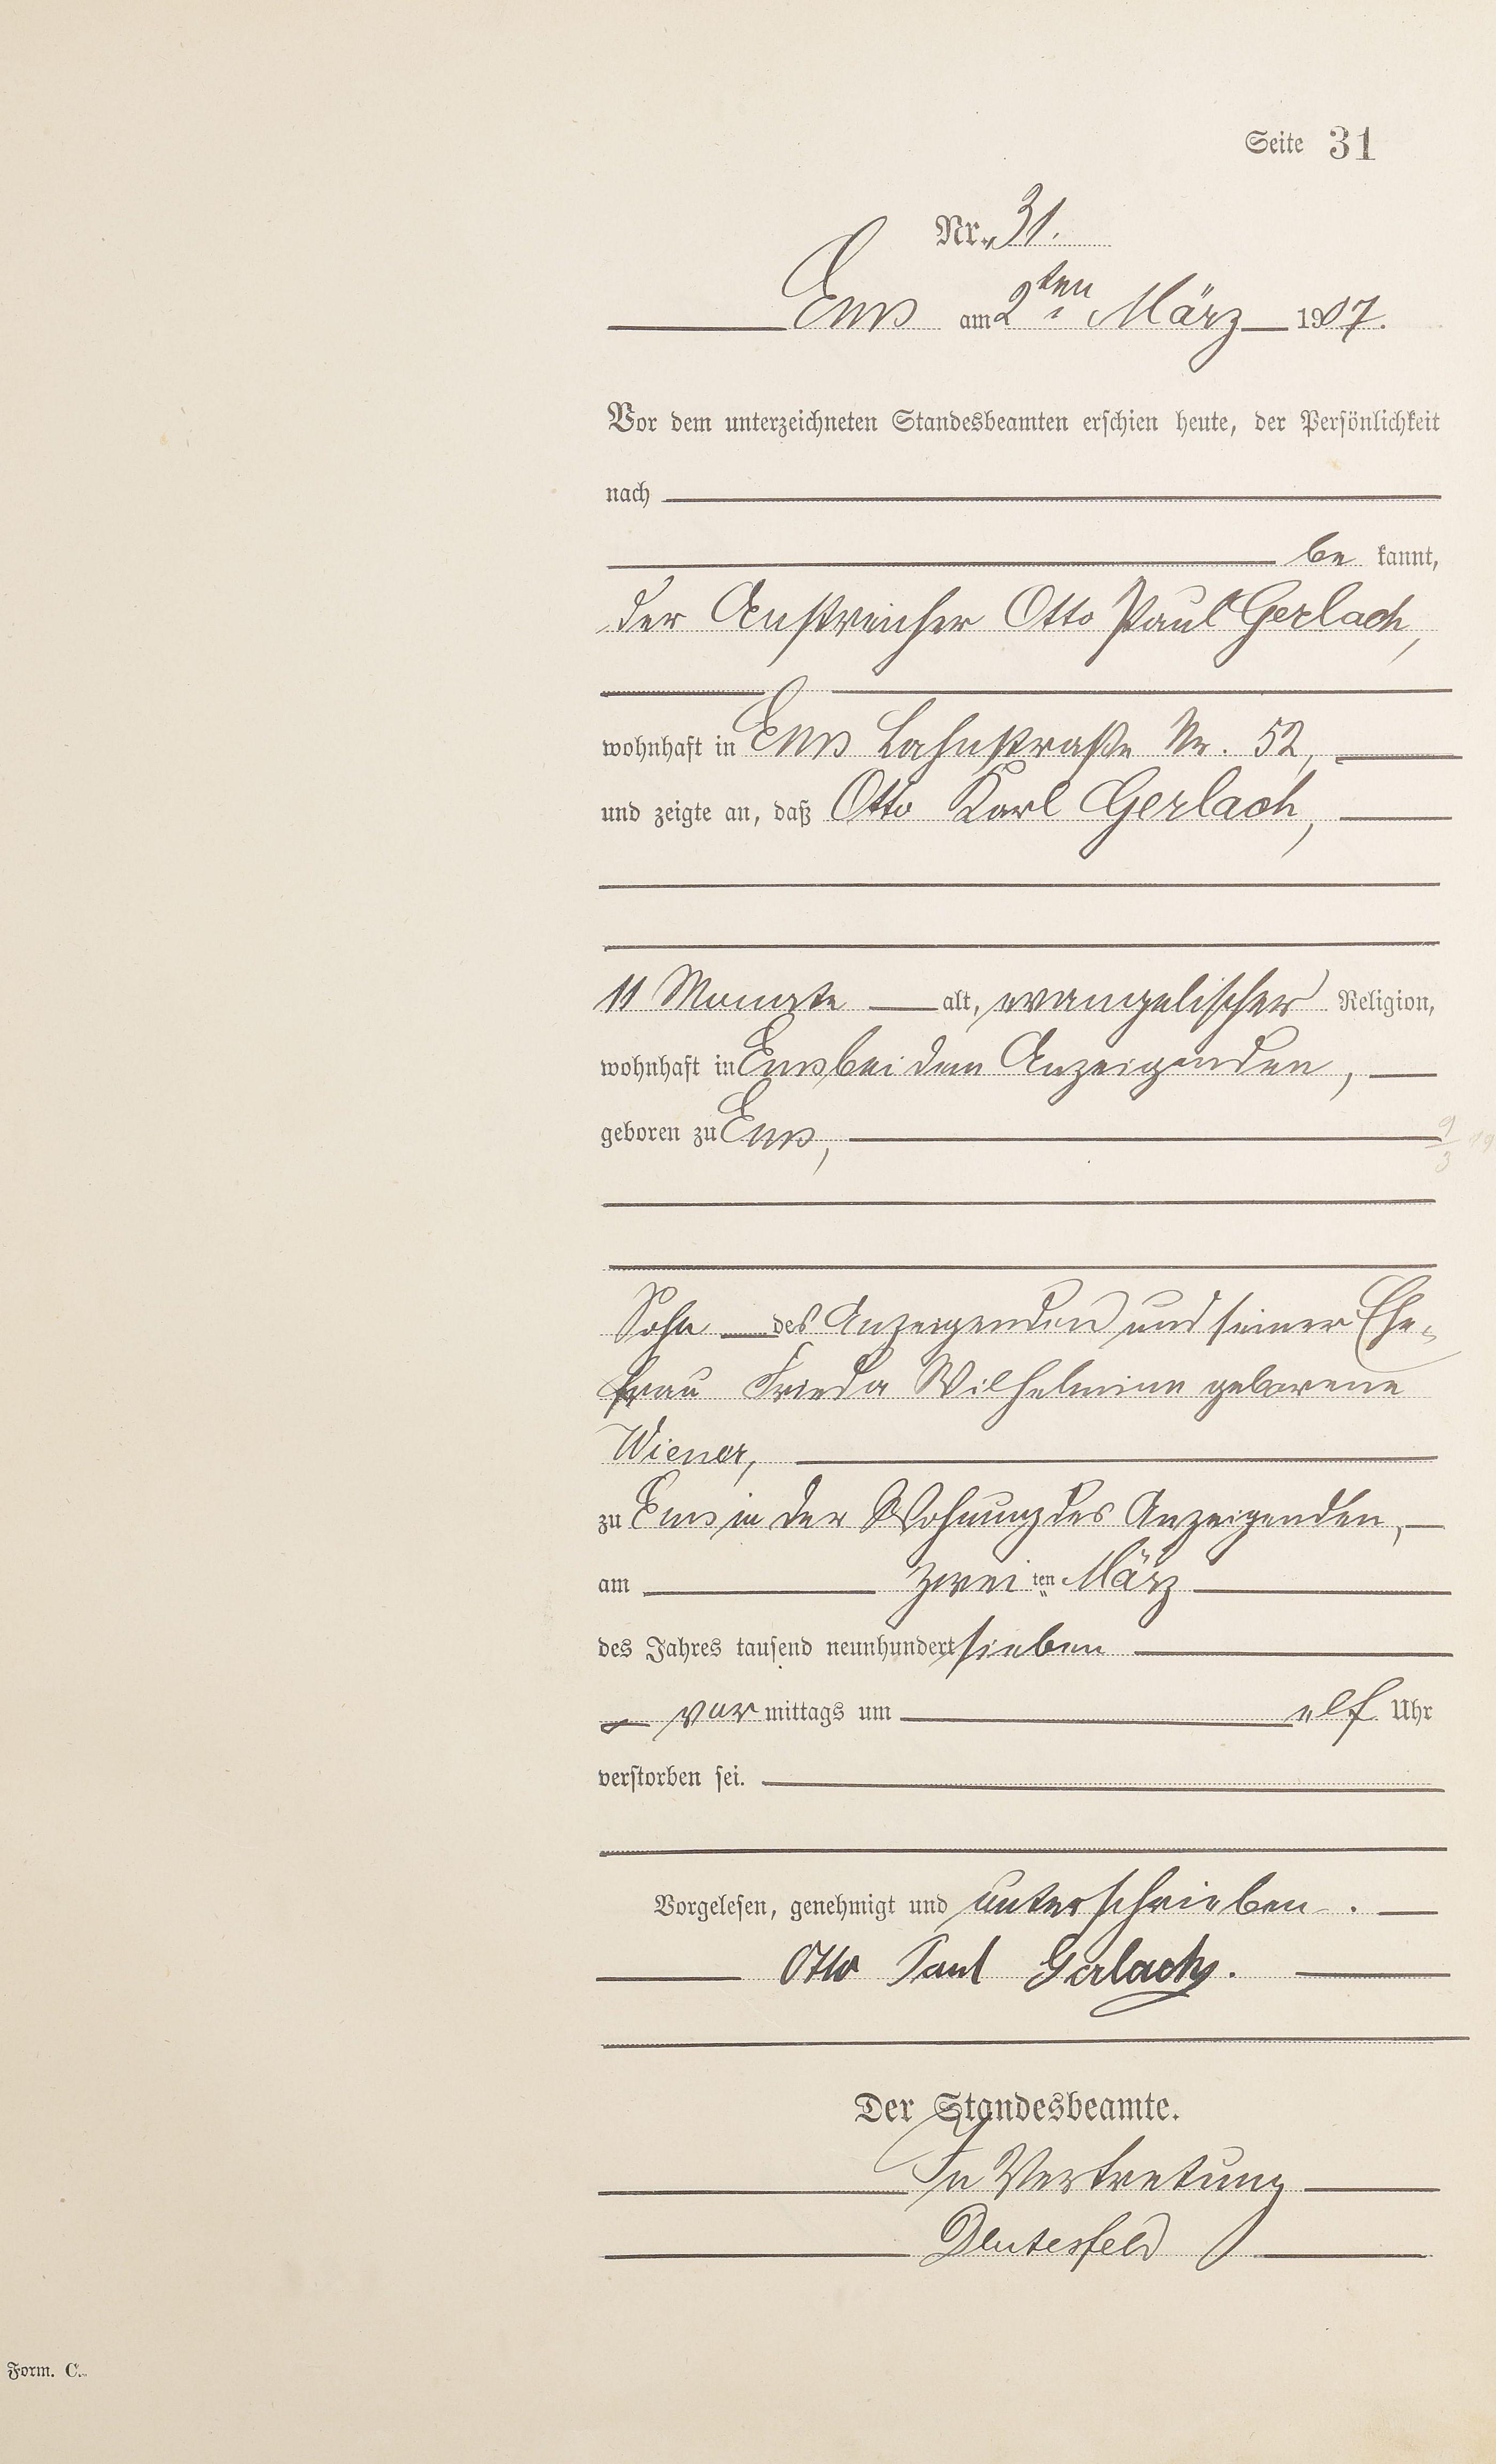 Seite 31
Nr. 31.
Ems am 2ten März 1907.
Vor dem unterzeichneten Standesbeamten erschien heute, der Persönlichkeit
nach
be kannt,
der Anstreicher Otto Paul Gerlach,
wohnhaft in Ems Lahnstraße Nr. 52,
und zeigte an, daß Otto Karl Gerlach,
11 Monate alt, evangelischer Religion,
wohnhaft in Ems bei dem Anzeigenden,
geboren zu Ems,
Sohn des Anzeigenden und seiner Ehe-
frau Frieda Wilhelmine geborene
Wiener,
zu Ems in der Wohnung des Anzeigenden,
am zwei ten März
des Jahres tausend neunhundert sieben
vor mittags um elf Uhr
verstorben sei.
Vorgelesen, genehmigt und unterschrieben.
Otto Paul Gerlach.
Der Standesbeamte.
In Vertretung
Form. C.